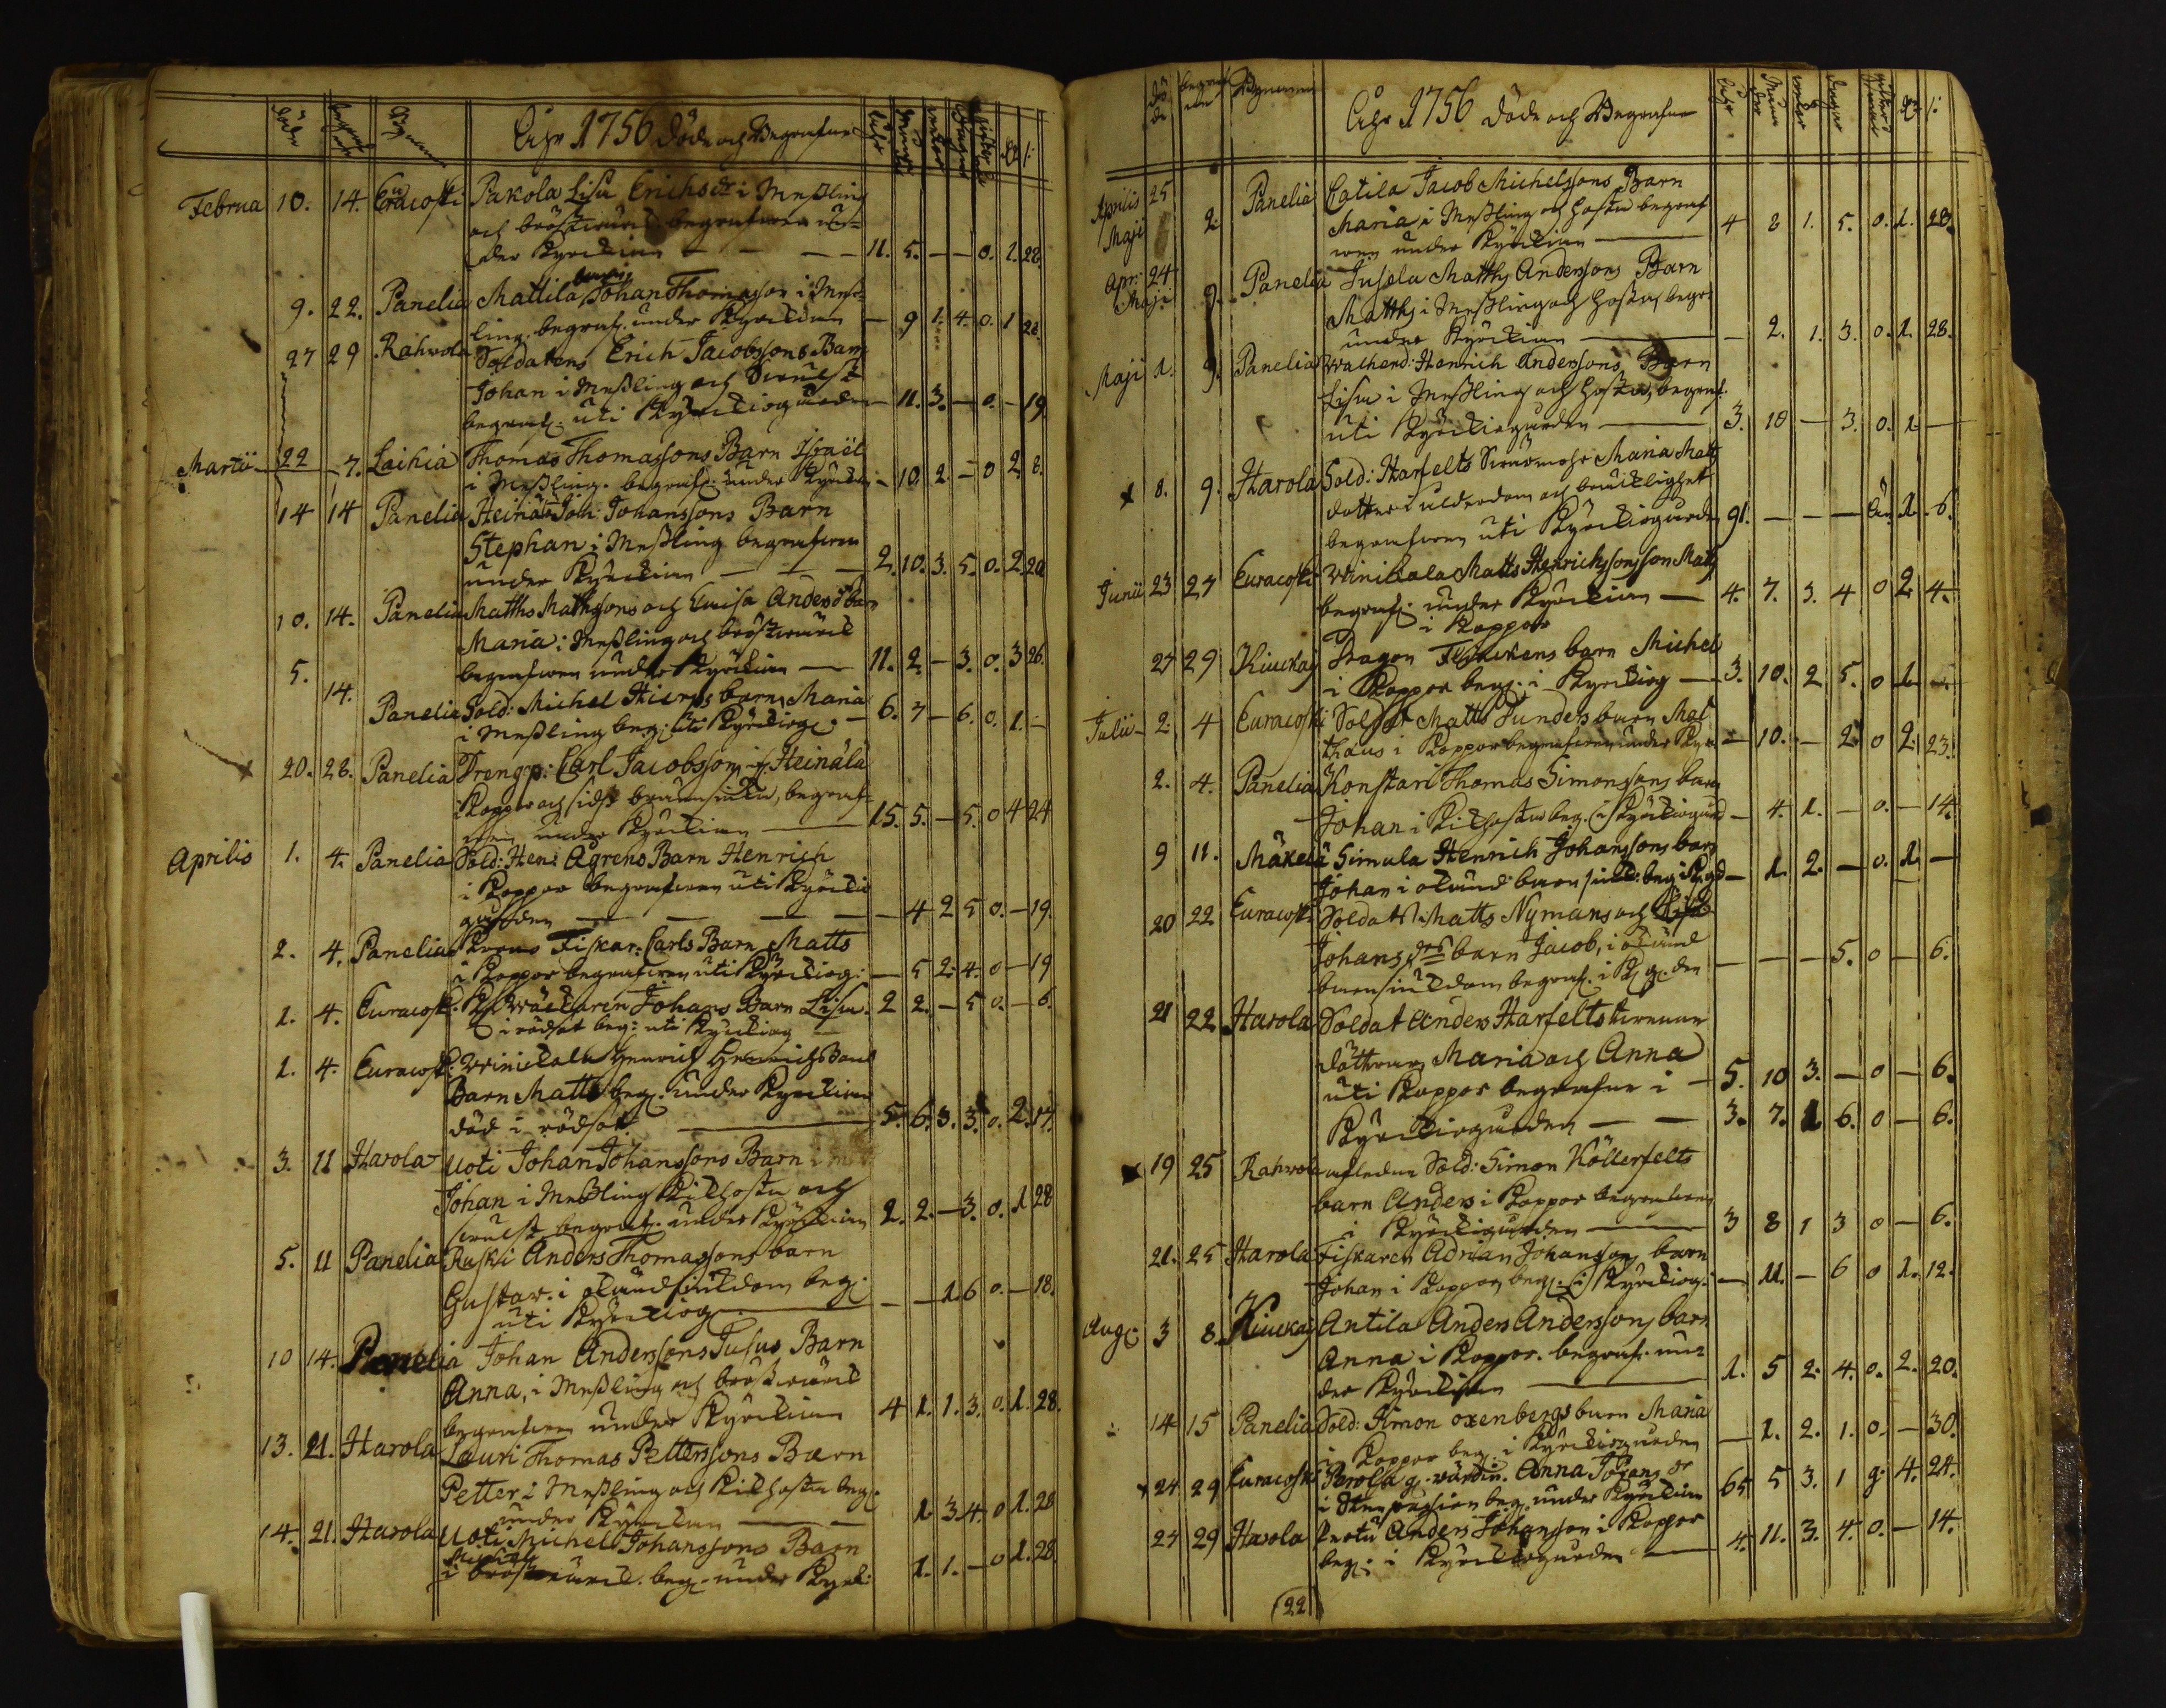 Åhr 1756 döde och Begrafne
Februa 10. 14. Euracoski Pakola Lisa Erichsdr i Meßling
och bröstwärck begrafwen un-
der Kyrckian 11. 5. — — 0. 1. 28.
9. 22. Panelia Mattila Johan Thomasson i Meß-
ling begraf. under Kyrckian — 9 1. 4. 0. 1 28.
27 29 Rahwola Soldatens Erich Jacobssons Barn
Johan i Meßling och Swulst
begraf. uti Kyrckiogården — 11. 3. — 0. — 19.
Martii 22 7. Laihia Thomas Thomassons Barn Israël
i Meßling. begraf. under Kyrckian — 10. 2. — 0 2. 8.
14 14 Panelia Heinälä Joh: Johanssons Barn
Stephan i Meßling begrafwen
under Kyrckian 2. 10. 3. 5. 0. 2. 20
10. 14. Panelia Matths Mathssons och Luisa Andersdr barn
Maria i Meßling och bröstwärck
begrafwen under Kyrckian 11. 2. — 3. 0. 3 26.
5. 14. Panelia Sold: Michel Hierps barn Maria
i Meßling beg: uti Kyrckiog. 6. 7 — 6. 0. 1. —
20. 28. Panelia Dreng: Carl Jacobsson i Heinälä
Koppor och sidst brännsiuka, begraf-
wen under Kyrckian 15. 5. — 5. 0 4 24
Aprilis 1. 4. Panelia Sold: Hen: Ågrens Barn Henrich
i Koppor begrafwen uti Kyrckio
gården — 4 2 5 0. — 19.
2. 4. Panelia Fiskar: Carls Barn Matts
i Koppor begrafwen uti Kyrckiog: — 5 2. 4. 0 — 19
1. 4. Euracosk: Johans Barn Lisa 2 2. — 5 0. — 6.
i rödsot beg: uti Kyrckiog
1. 4. Euracosk: Winickala Henrich Henrichssons
Barn Matts beg. under Kyrckian
död i rödsot 5. 6. 3. 3. 0. 2. 17.
3. 11 Harola Uoti Johan Johanssons Barn
Johan i Meßling Kickhosta och
swulst begraf. under Kyrckian 2. 2. — 3. 0. 1 28
5. 11 Panelia Ruski Anders Thomassons barn
Gustav. i okänd siukdom beg:
uti Kyrckiog — — 1. 6 0. — 18.
10 14. Panelia Johan Anderssons Tusus Barn
Anna, i Meßling och bröstwärck
begrafwen under Kyrckian 4 1. 1. 3. 0. 1. 28.
13. 21. Harola Lauri Thomas Petterssons Barn
Petter i Meßling och Kickhosta beg.
under Kyrckian 1. 3. 4. 0 1. 28
14. 21. Harola Uoti Michel Johanssons Barn
Michel
i bröstwärck. beg. under Kyrck: 1. 1. — 0 1. 28.
Åhr 1756 döde och Begrafne
Aprilis 25
Maji 2. Panelia Catila Jacob Michelssons Barn
Maria i Meßling och hosta begraf
wen under Kyrckian 4 8 1. 5. 0. 1. 28.
Apr: 24
Maji 9. Panelia Jusela Matths Anderssons Barn
Matths i Meßling och hosta begr
under Kyrckian — 2. 1. 3. 0. 1. 28.
Maji 1. 9. Panelia Walhend: Henrich Anderssons Barn
Lisa i Meßling och hosta, begraf.
uti Kyrckiogården 3. 10 — 3. 0. 1. —
8. 9. Harola Sold: Harfelts Swärmohr Maria Matts
dotter i ålderdom och bräcklighet
begrafwen uti Kyrckiogården 91. — — — 1. 6.
Junii 23 27 Euracoski Winikala Matts Henrichssons son Matts
begraf. under Kyrckian 4. 7. 3. 4 0 2. 4.
i Koppor
27 29 Kiuckais Dragon barn Michel
i Koppor beg. i Kyrckiog 3. 10. 2 5. 0 1
Julii 2. 4 Euracoski Soldat Matts Tunders barn Mat
thæus i Koppor begrafwen under Kyr — 10. — 2. 0 2. 23.
2. 4. Panelia Konstari Thomas Simonssons barn
Johan i Kickhosta beg. i Kyrckiogård — 4. 1. — 0. — 14.
9 11. Mäkelä Simula Henrich Johanssons barn
Johan i okänd barnsiukd: beg i K:gd — 1. 2. — 0. 1. —
20 22 Euracoski Soldat Matts Nymans och Lisa
Johansdrs barn Jacob, i okänd
barnsiukdom begraf. i K.g:den — — — 5. 0 — 6.
21 22 Harola Soldat Anders Harfelts twenne
döttrar Maria och Anna
uti Koppor begrafne i 5. 10 3. — 0 — 6.
Kyrckiogården 3. 7. 1 6. 0 — 6.
19 25 Rahwola afledne Sold: Simon Köllerfelts
barn Anders i Koppor begrafwen
i Kyrckiogården 3 8 1 3 0 — 6.
21. 25 Harola Fiskaren Adrian Johanssons barn
Johan i Koppor beg. i Kyrckiog: — 11. — 6 0 1. 12.
Aug: 3 8. Kiuckais Antila Anders Anderssons barn
Anna i Koppor. begraf. un-
der Kyrckian 1. 5 2. 4. 0. 2. 20.
14 15 Panelia Sold: Simon Oxenbergs barn Maria
i Koppor beg. i Kyrckiogården — 1. 2. 1. 0. — 30.
24 29 Euracoski Perola g. värdin. Anna Johans dr
beg. under Kyrckian 65 5 3. 1 g. 4. 24.
24 29 Harola Anders Johansson i Koppor
beg. i Kyrckiogården 4. 11. 3. 4. 0. — 14.
(22)